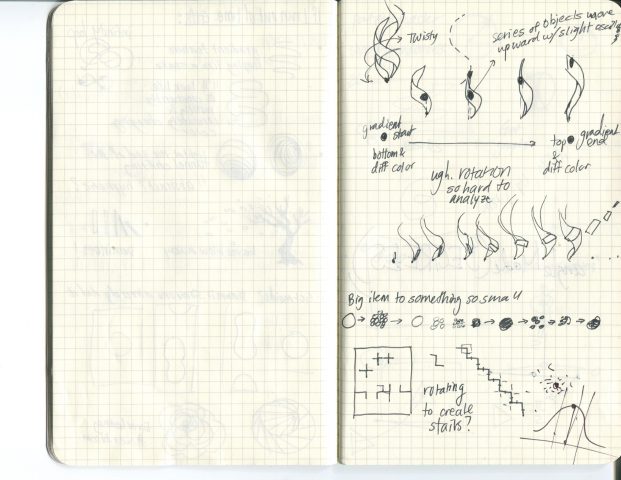 Twisty
series of objects move
upward w/ slight
gradient
start
bottom &
diff color
top
gradient
end
&
diff color
ugh. rotation
so hard to
analyze
Big item to something so small
rotating
to create
stairs?